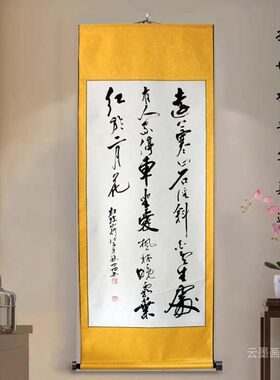 遠上寒山石径斜白雲生處
有人家停車坐愛楓林晚霜葉
红於二月花
云墨画